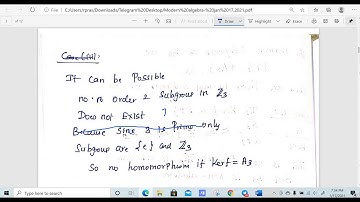 C:/Users/rpras/Downloads/Telegram%20Desktop/Modern%20algebra-%20jan%2017,2021.pdf
of 12
Draw
Case (iii):
It Can be Possible
no. n order 2 Subgroup in Z3
Does not Exist ?
Because Sine 3 is Prime only
Subgroup are {e} and Z3
So no homomorphism if Kerf = A3
Type here to search
1/17/2021